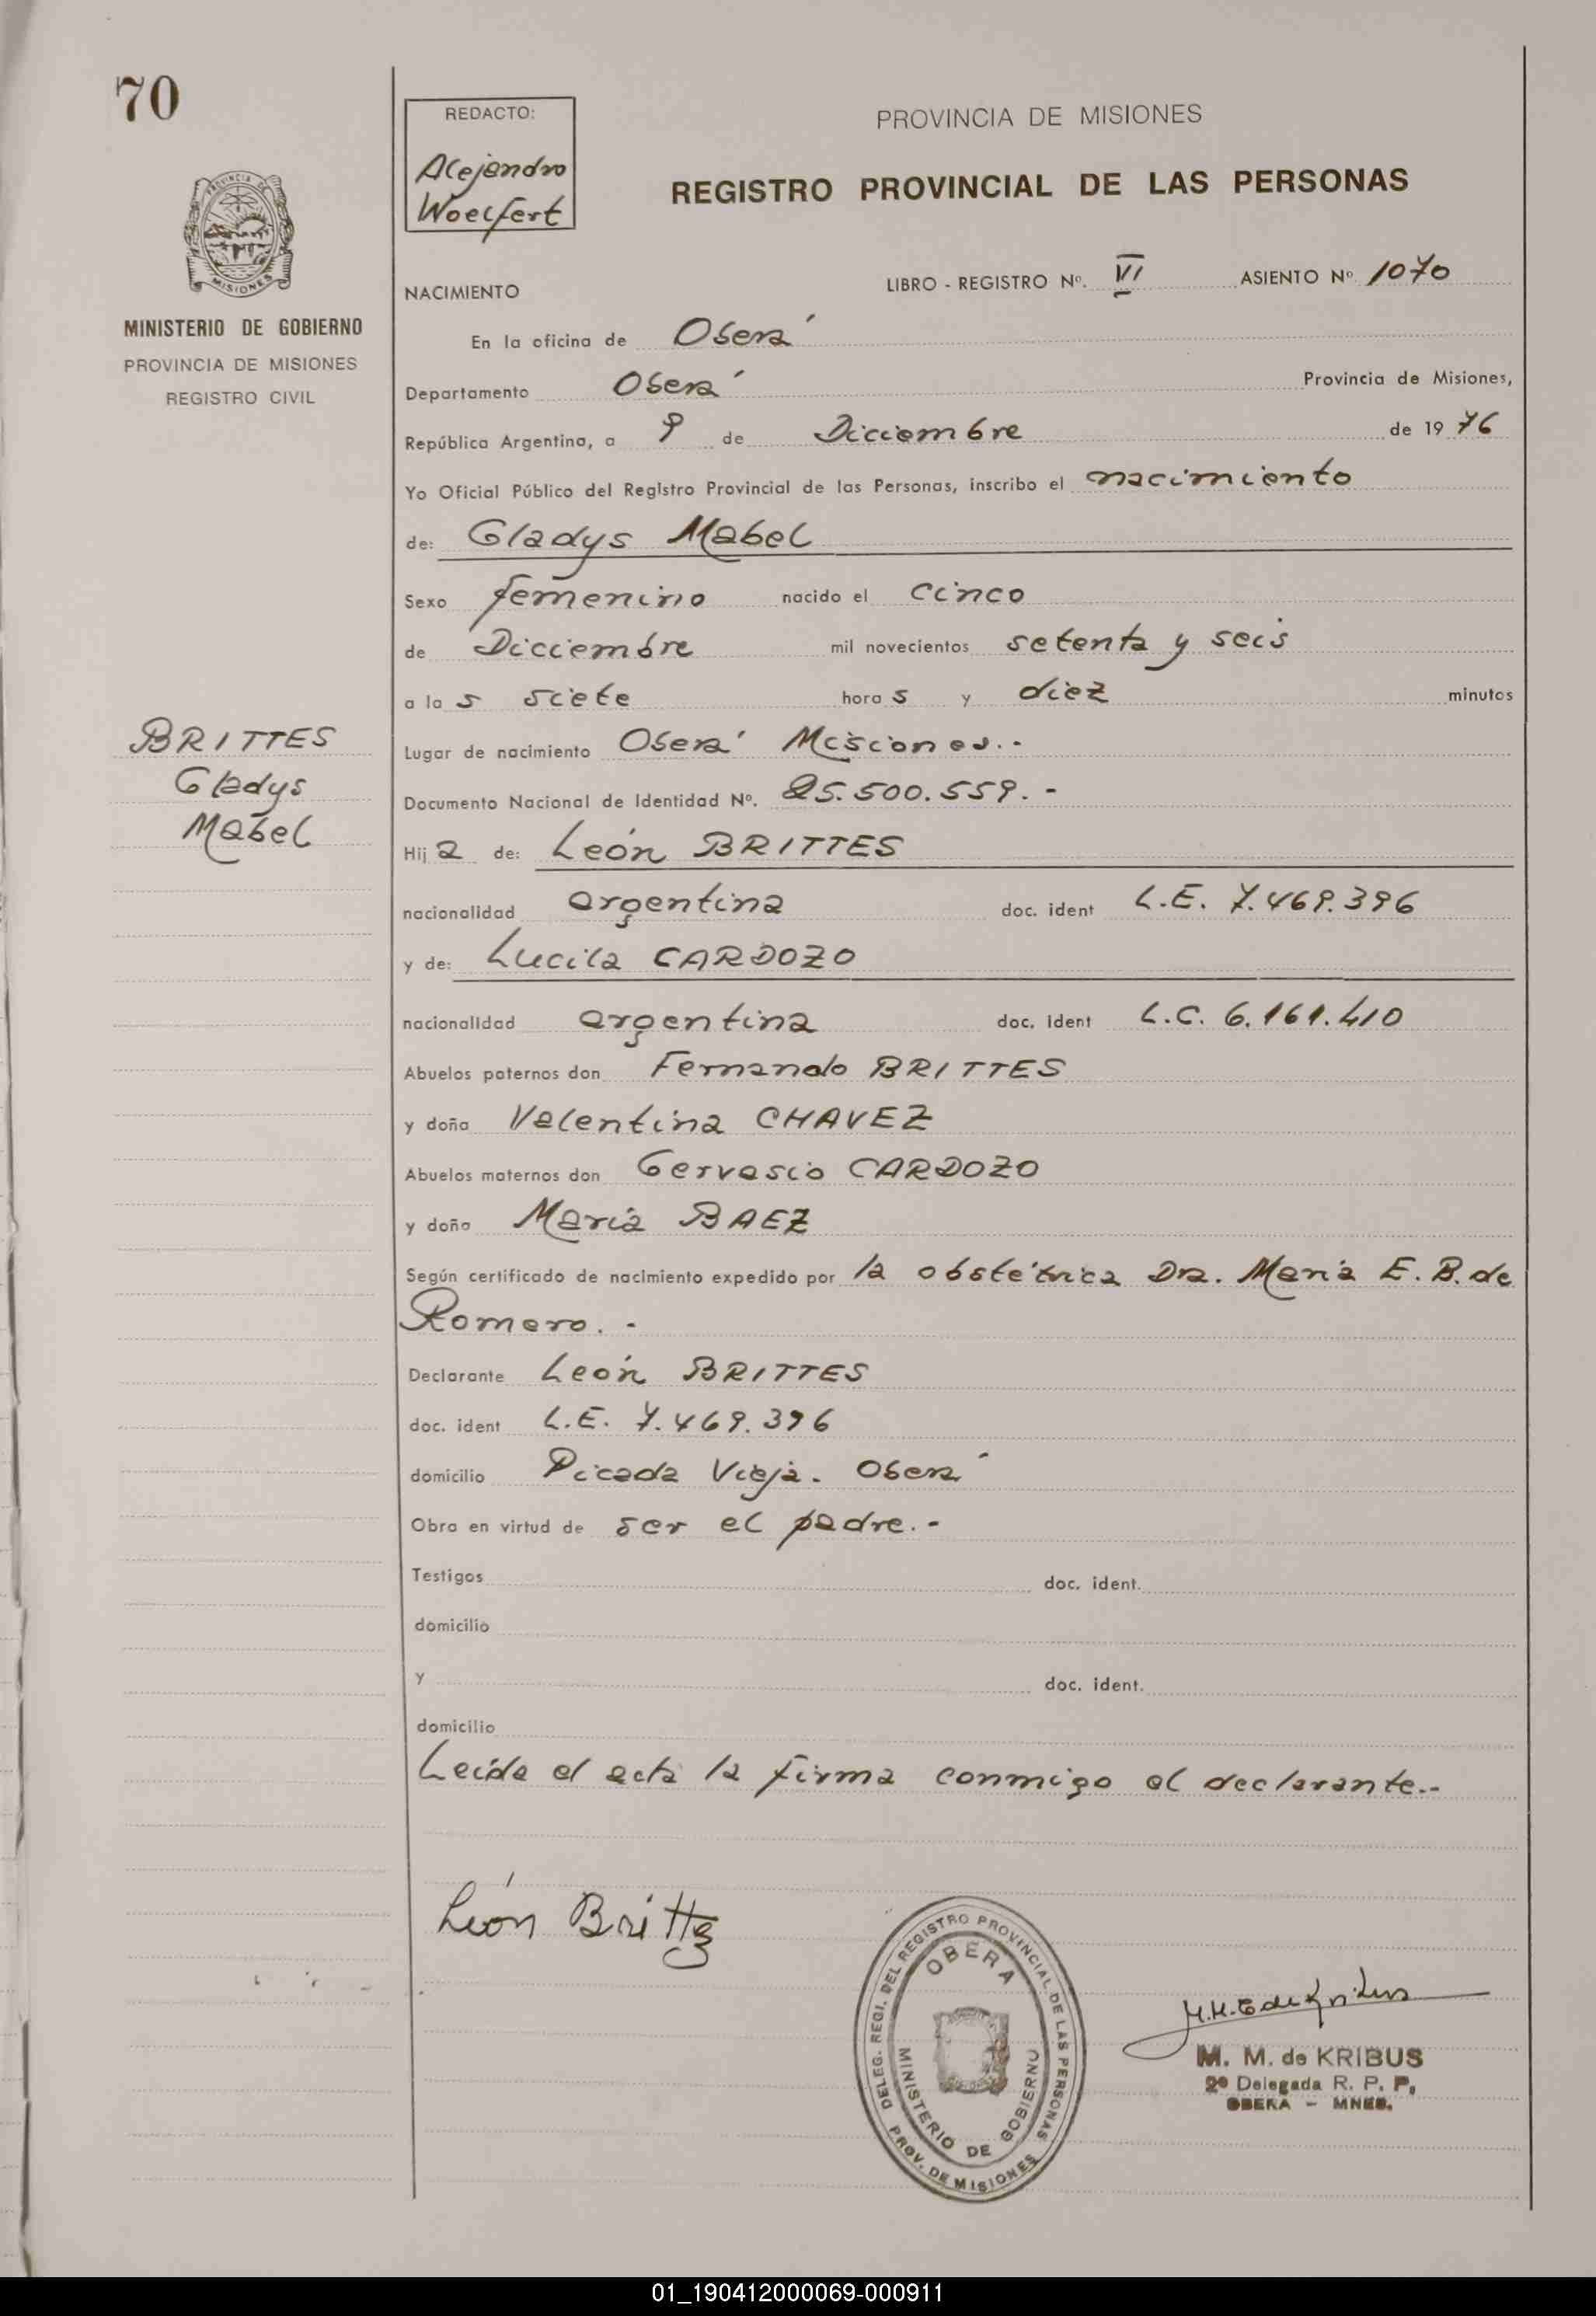 70
REDACTO:
Alejandro
Woelfert
PROVINCIA DE MISIONES
REGISTRO PROVINCIAL DE LAS PERSONAS
PROVINCIA DE
MISIONES
MINISTERIO DE GOBIERNO
PROVINCIA DE MISIONES
REGISTRO CIVIL
NACIMIENTO
LIBRO - REGISTRO Nº. VI ASIENTO Nº 1070
En la oficina de Oberá
Departamento Oberá Provincia de Misiones,
República Argentina, a 9 de Dicciembre de 1976
Yo Oficial Público del Registro Provincial de las Personas, inscribo el nacimiento
de: Gladys Mabel
Sexo femenino nacido el cinco
de Dicciembre mil novecientos setenta y seis
a la s siete hora s y diez minutos
BRITTES
Gladys
Mabel
Lugar de nacimiento Oberá Misiones.-
Documento Nacional de Identidad Nº. 25.500.559.-
Hij a de: León BRITTES
nacionalidad argentina doc. ident L.E. 7.469.396
y de: Lucila CARDOZO
nacionalidad argentina doc. ident L.C. 6.161.410
Abuelos paternos don Fernando BRITTES
y doña Valentina CHAVEZ
Abuelos maternos don Gervasio CARDOZO
y doña María BAEZ
Según certificado de nacimiento expedido por la obstétrica Dra. María E. B. de
Romero.-
Declarante León BRITTES
doc. ident L.E. 7.469.396
domicilio Picada Vieja. Oberá
Obra en virtud de ser el padre.-
Testigos doc. ident.
domicilio
y doc. ident.
domicilio
Leída el acta la firma conmigo el declarante.-
León Brittes
DELEG. REGI. DEL REGISTRO PROVINCIAL DE LAS PERSONAS
OBERA
MINISTERIO DE GOBIERNO
PROV. DE MISIONES
M. M. de KRIBUS
2º Delegada R. P. P.
OBERA - MNES.
01_190412000069-000911